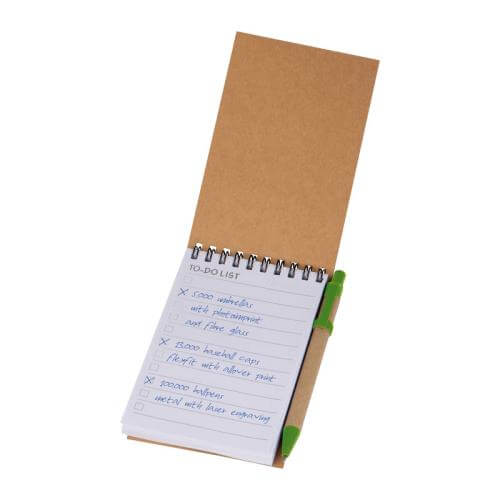 TO-DO LIST
5.000 umbrellas
with photoinprint
and fibre glass
13.000 baseball caps
flexfit with allover print
200.000 ballpens
metal with laser engraving